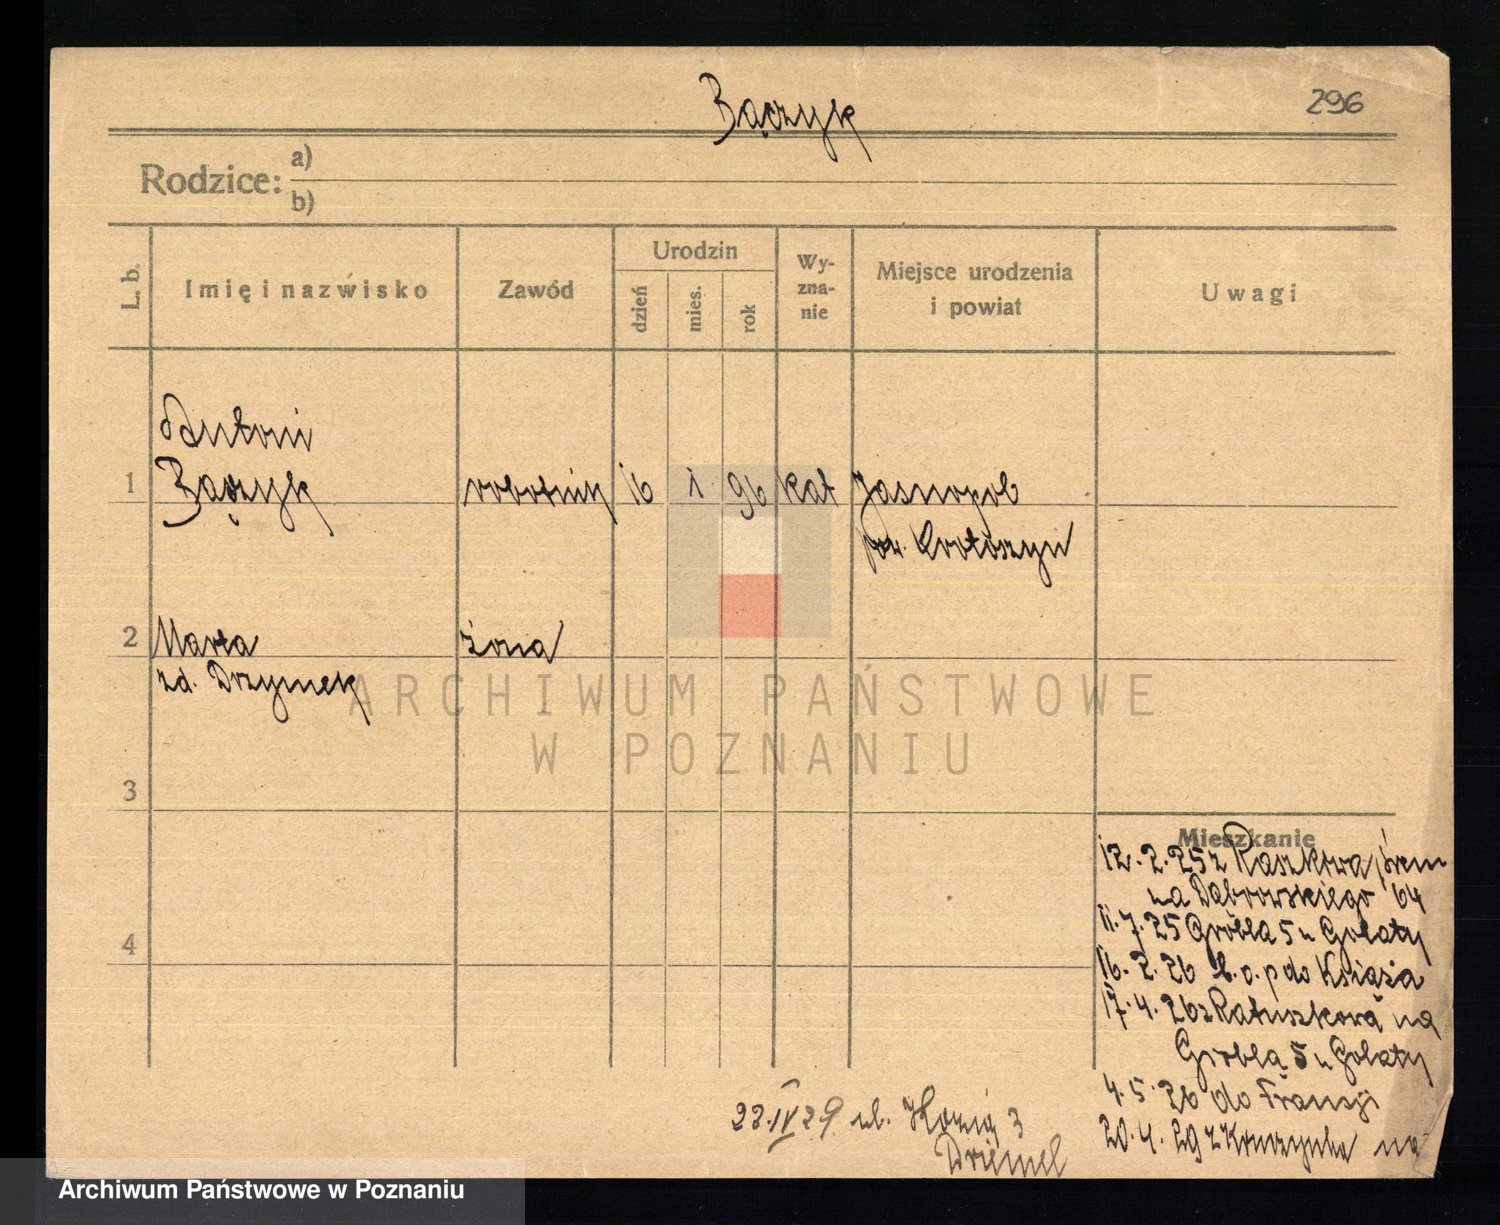 Bączyk
296
Rodzice:
a)
b)
L. b.
Imię i nazwisko
Zawód
Urodzin
dzień
mies.
rok
Wy-
zna-
nie
Miejsce urodzenia
i powiat
Uwagi
Antoni
1 Bączyk robotnik 16 1 96 kat Jasnopol
pow. Krotoszyn
2 Marta żona
zd. Drzymek
ARCHIWUM PAŃSTWOWE
W POZNANIU
3
4
Mieszkanie
12.2.25 z Raszkowa
na Dąbrowskiego 64
11.7.25 Grobla 5 u Golaty
16.2.26 do Książa
17.4.26 z Ratuszkowa na
Grobla 5 u Golaty
4.5.26 do Francji
20.4.29 z na
22.IV.29 ul. 3
Archiwum Państwowe w Poznaniu